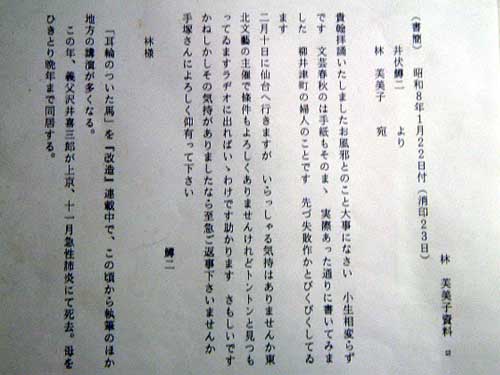 林 芙美子資料
(書簡) 昭和8年1月22日付(消印23日)
井伏鱒二 より
林 芙美子 宛
貴翰拝誦いたしましたお風邪とのこと大事になさい 小生相変らず
です 文芸春秋のは手紙もそのまゝ 実際あった通りに書いてみま
した 柳井津町の婦人のことです 先づ失敗作かとびくびくしてゐ
ます
二月十日に仙台へ行きますが いらっしゃる気持はありませんか東
北文藝の主催で條件もよろしくありませんけれどトントンと見つも
ってゐますラヂオに出ればいゝわけです助かります さもしいです
かねしかしその気持がありましたなら至急ご返事下さいませんか
手塚さんによろしく仰有って下さい
鱒二
林様
「耳輪のついた馬」を『改造』連載中で、この頃から執筆のほか
地方の講演が多くなる。
この年、義父沢井喜三郎が上京、十一月急性肺炎にて死去。母を
ひきとり晩年まで同居する。